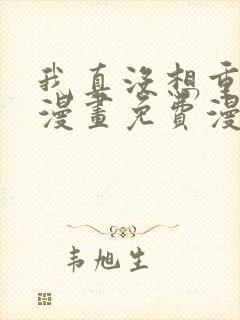 我真没想重
漫畫免費漫
韦旭生